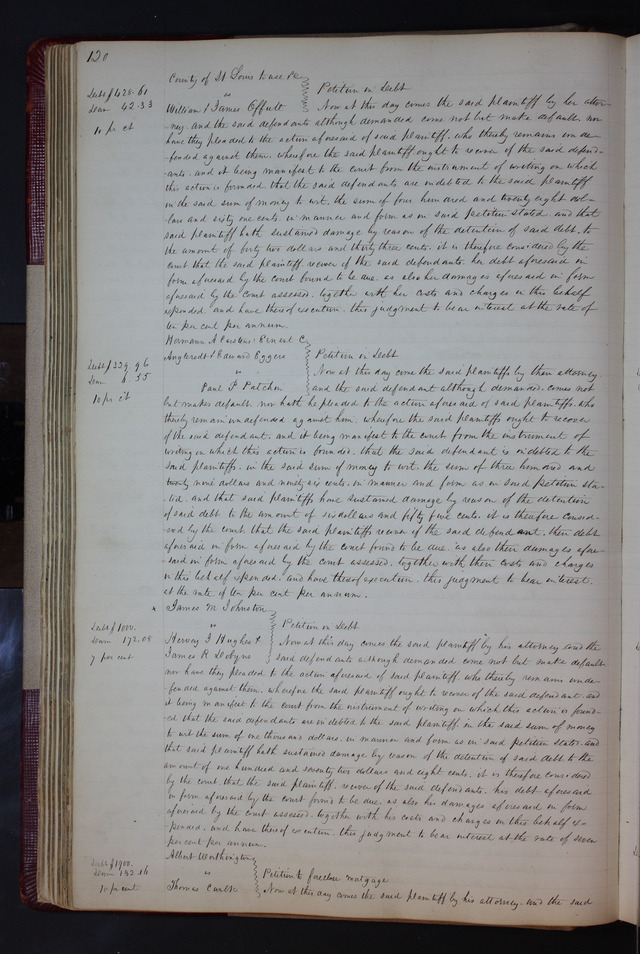 120
County of St Louis to use &c
Debt $428.61
Petition in Debt
Dam 42.33
William & James Offutt
Now at this day comes the said plaintiff by her attor-
10 pr ct
ney, and the said defendants although demanded come not but make default, nor
have they pleaded to the action aforesaid of said plaintiff, who thereby remains unde-
fended against them, wherefore the said plaintiff ought to recover of the said defend-
ants, and it being manifest to the court from the instrument of writing on which
this action is founded, that the said defendants are indebted to the said plaintiff
in the said sum of money to wit, the sum of four hundred and twenty eight dol-
lars and sixty one cents in manner and form as in said petition stated, and that
said plaintiff hath sustained damage by reason of the detention of said debt, to
the amount of forty two dollars and thirty three cents, it is therefore considered by the
court that the said plaintiff recover of the said defendants her debt aforesaid in
form aforesaid by the court found to be due, as also her damages aforesaid in form
aforesaid by the court assessed, together with her costs and charges in this behalf
expended, and have thereof execution, this judgment to bear interest at the rate of
ten per cent per annum.
Hermann A Ernest C
Angelrodt & Edward Eggers
Petition in Debt
Debt $329.96
Dam 6.55
Now at this day come the said plaintiffs by their attorney
Paul P Patchin
and the said defendant although demanded, comes not
10 pr ct
but makes default, nor hath he pleaded to the action aforesaid of said plaintiffs, who
thereby remain undefended against him, wherefore the said plaintiffs ought to recover
of the said defendant, and it being manifest to the court from the instrument of
writing on which this action is founded, that the said defendant is indebted to the
said plaintiffs, in the said sum of money to wit, the sum of three hundred and
twenty nine dollars and ninety six cents, in manner and form as in said petition sta-
ted, and that said plaintiffs have sustained damage by reason of the detention
of said debt to the amount of six dollars and fifty five cents, it is therefore consid-
ered by the court, that the said plaintiffs recover of the said defendant, their debt
aforesaid in form aforesaid by the court found to be due, as also their damages afore-
said in form aforesaid by the court assessed, together with their costs and charges
in this behalf expended, and have thereof execution, this judgment to bear interest
at the rate of ten per cent per annum.
James M Johnston
Debt $1000.
Petition in Debt
Dam 172.08
Hervey I Hughes &
Now at this day comes the said plaintiff by his attorney and the
7 per cent
James R Dobyns
said defendants although demanded come not but make default
nor have they pleaded to the action aforesaid of said plaintiff, who thereby remains unde-
fended against them, wherefore the said plaintiff ought to recover of the said defendant and
it being manifest to the court from the instrument of writing on which this action is found-
ed that the said defendants are indebted to the said plaintiff in the said sum of money
to wit the sum of one thousand dollars, in manner and form as in said petition stated, and
that said plaintiff hath sustained damage by reason of the detention of said debt to the
amount of one hundred and seventy two dollars and eight cents, it is therefore considered
by the court, that the said plaintiff, recover of the said defendants, his debt aforesaid
in form aforesaid by the court found to be due, as also his damages aforesaid in form
aforesaid by the court assessed, together with his costs and charges in this behalf ex-
pended, and have thereof execution, this judgment to bear interest at the rate of seven
per cent per annum.
Albert Worthington
Debt $1900.
Dam 192.16
Petition to foreclose mortgage
10 pr cent
Thomas
Now at this day comes the said plaintiff by his attorney, and the said